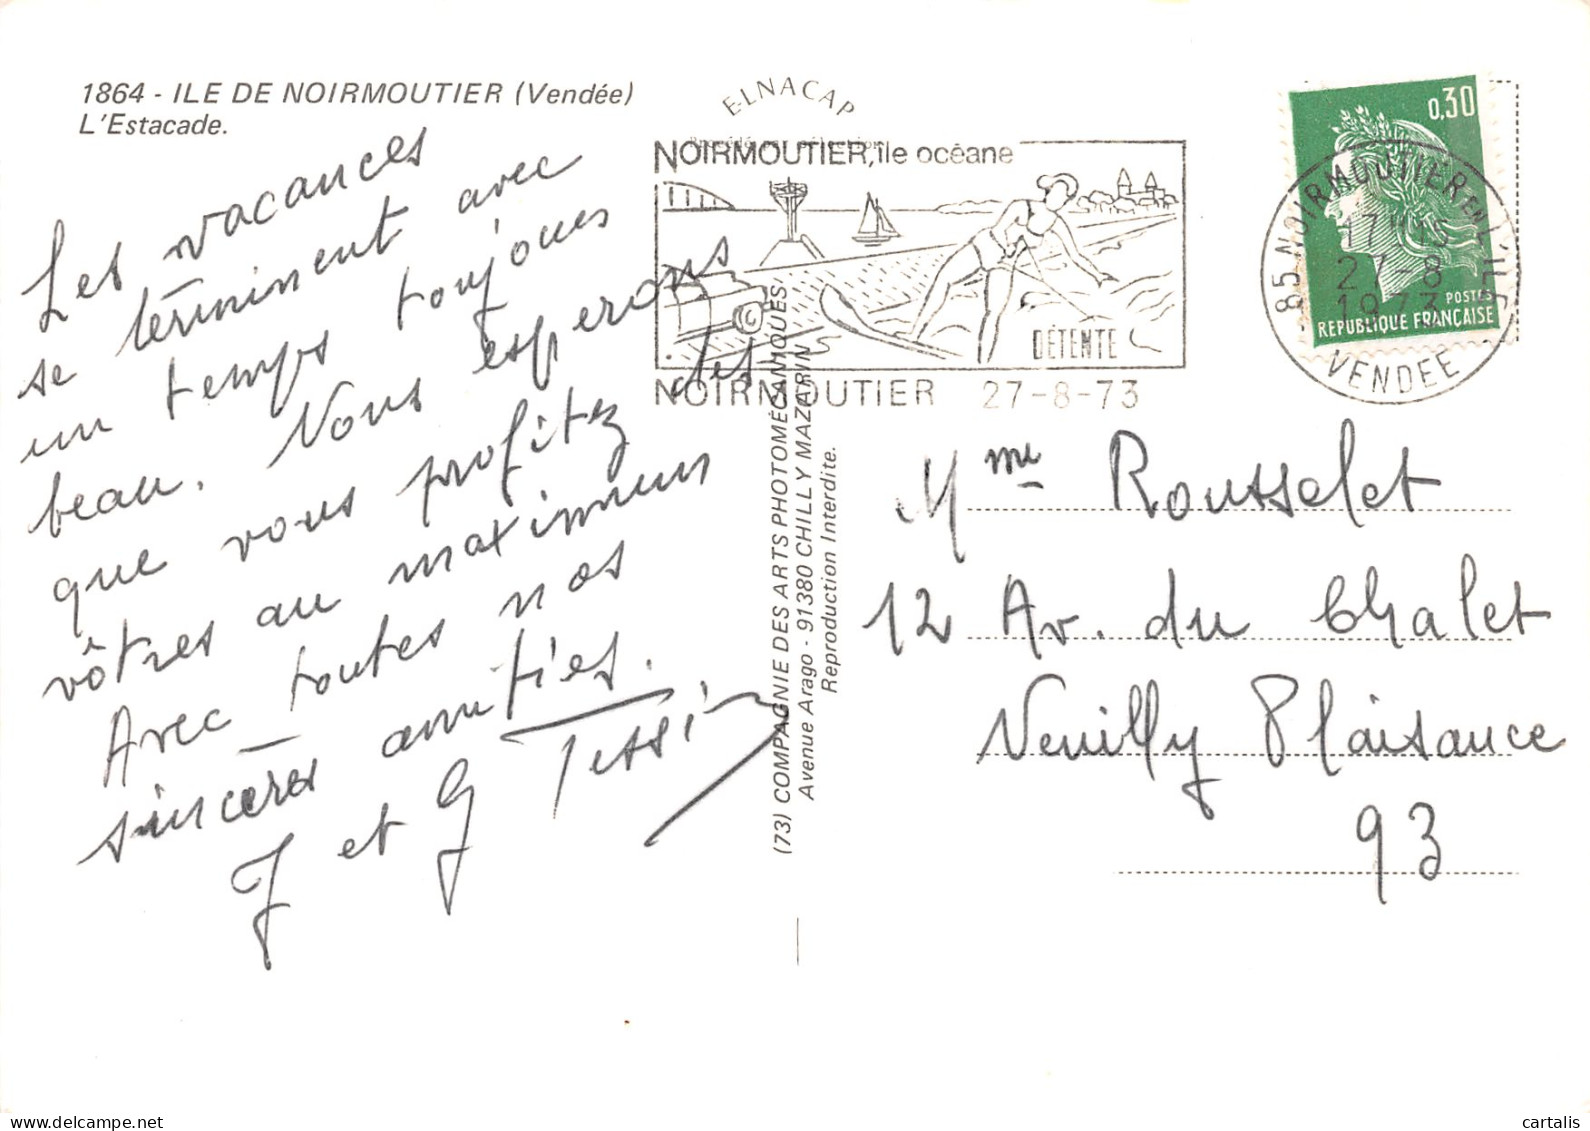 1864 - ILE DE NOIRMOUTIER (Vendée)
L'Estacade.
Les vacances
se terminent avec
un temps toujours
beau. Nous esperons
que vous profitez des
vôtres au maximum
Avec toutes nos
sincères amitiés.
J et G Tessier
E-LNACAP
NOIRMOUTIER, île océane
DÉTENTE
NOIRMOUTIER 27-8-73
0,30
POSTES
REPUBLIQUE FRANÇAISE
85 NOIRMOUTIER EN L'ILE
17H15
27-8
1973
VENDEE
(73) COMPAGNIE DES ARTS PHOTOMÉCANIQUES
Avenue Arago - 91380 CHILLY MAZARIN
Reproduction Interdite.
Mme Rousselet
12 Av. du Chalet
Neuilly Plaisance
93
delcampe.net
cartalis